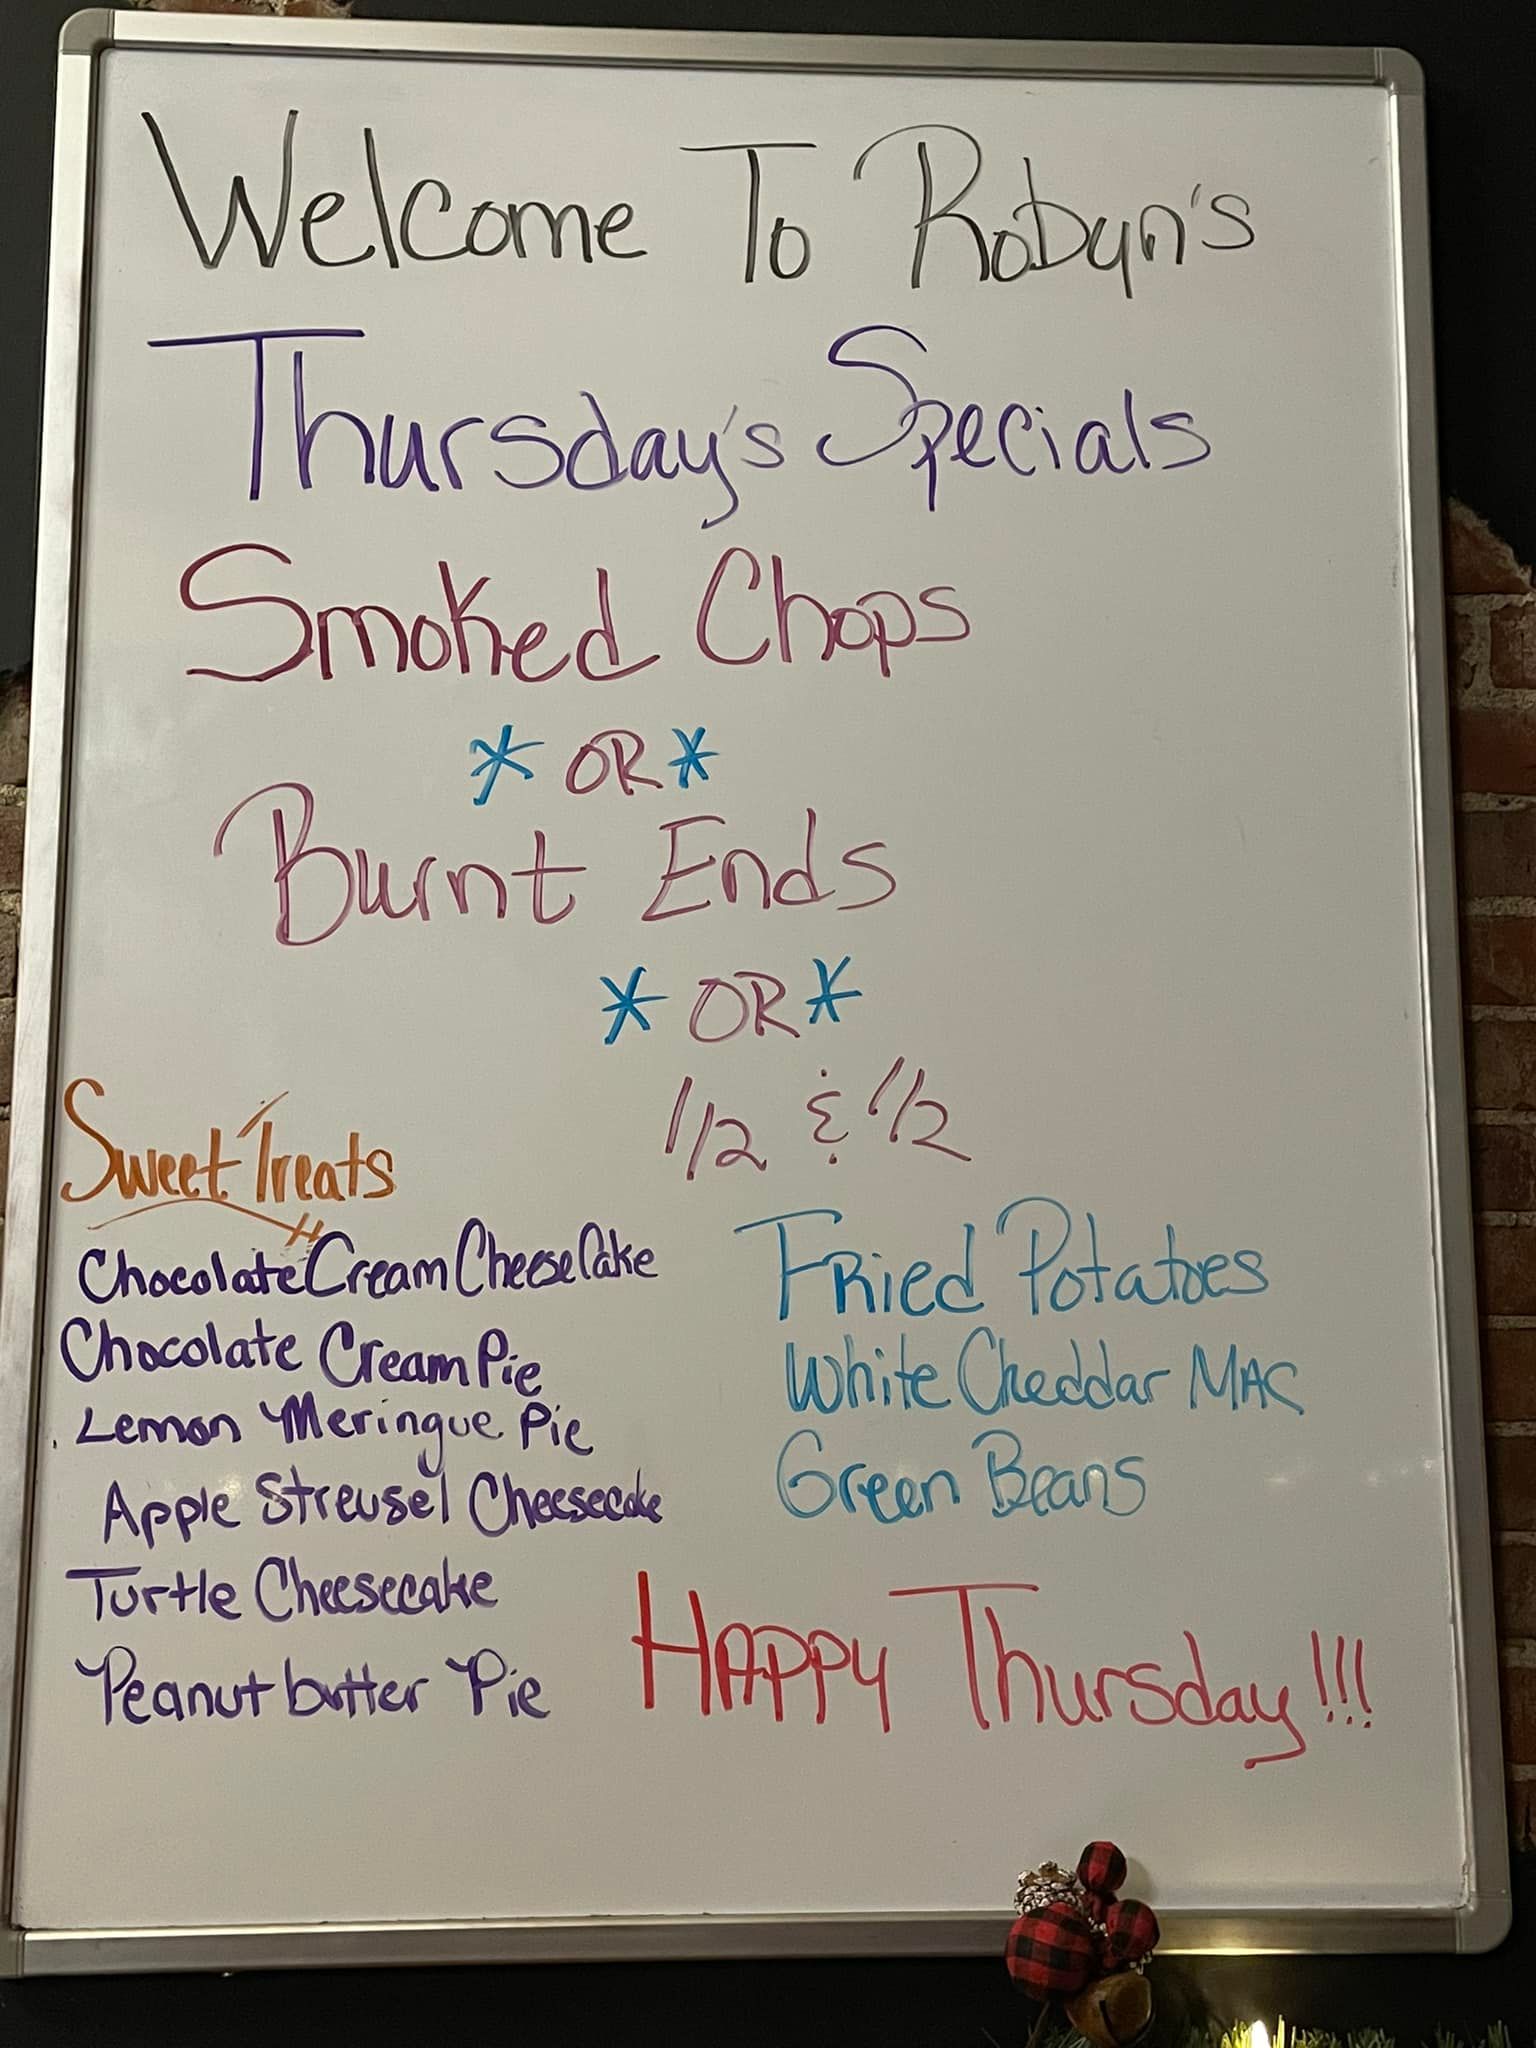 Welcome To Robyn's
Thursday's Specials
Smoked Chops
* OR *
Burnt Ends
* OR *
1/2 & 1/2
Sweet Treats
Chocolate Cream CheeseCake
Chocolate Cream Pie
Lemon Meringue Pie
Apple Streusel Cheesecake
Turtle Cheesecake
Peanut butter Pie
FRied Potatoes
White Cheddar MAC
Green Beans
HAPPY Thursday!!!